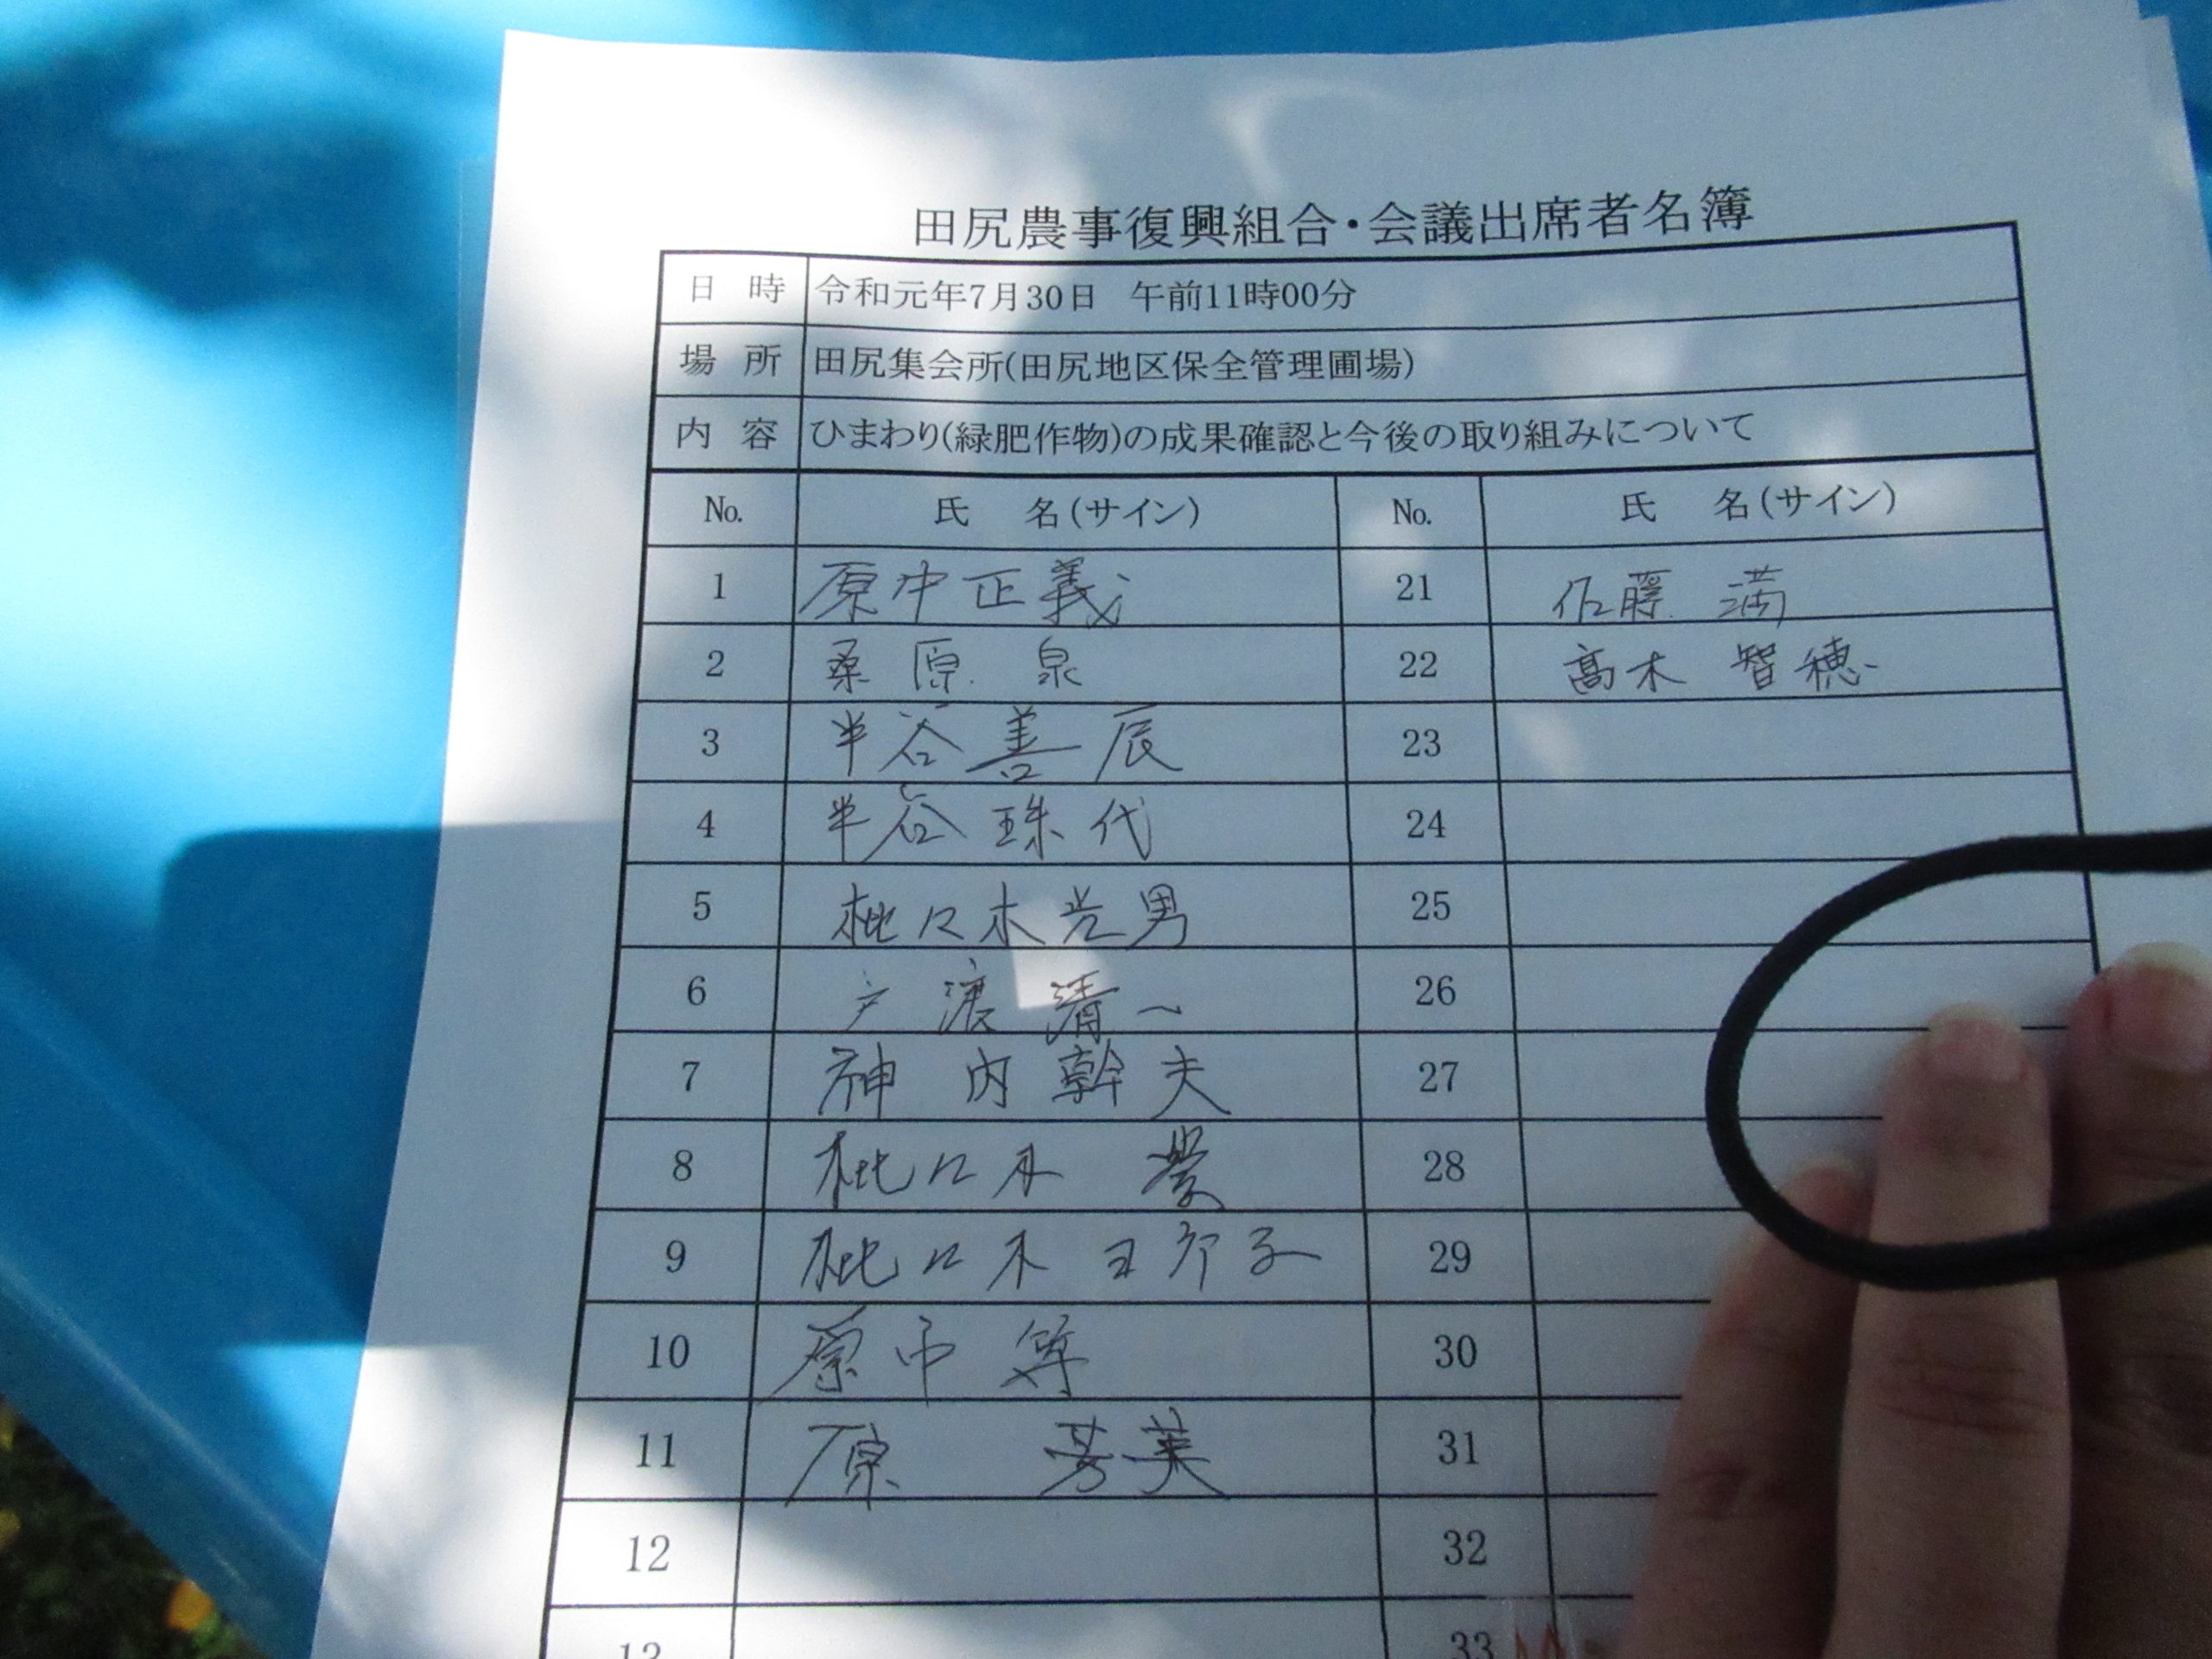 田尻農事復興組合・会議出席者名簿
日 時 令和元年7月30日 午前11時00分
場 所 田尻集会所(田尻地区保全管理圃場)
内 容 ひまわり(緑肥作物)の成果確認と今後の取り組みについて
No. 氏 名(サイン) No. 氏 名(サイン)
1 原中正義 21 佐藤 満
2 桑原 泉 22 髙木 智穂
3 半谷善辰 23
4 半谷珠代 24
5 枇々木光男 25
6 戸渡清一 26
7 神内幹夫 27
8 枇々木 榮 28
9 枇々木 子 29
10 原中 30
11 原 芳美 31
12 32
13 33